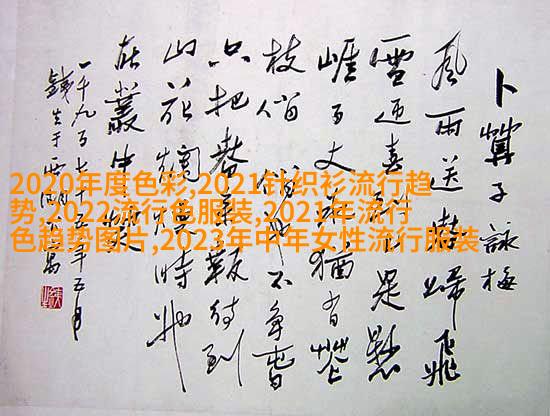 卜算子 詠梅
風雨送春歸飛
雪迎春到已是懸
崖百丈冰猶有花
枝俏俏也不爭春
只把春來報待到
山花爛漫時她
在叢中笑
一千九百七十五年五月
2020年度色彩,2021针织衫流行趋
势,2022流行色服装,2021年流行
色趋势图片,2023年中年女性流行服装